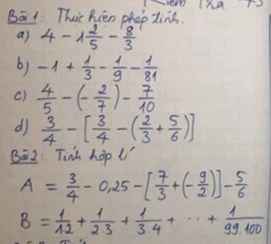 Bài 1: Thực hiện phép tính.
a) 4 - 1 2/5 - 8/3
b) -1 + 1/3 - 1/9 - 1/81
c) 4/5 - (-2/7) - 7/10
d) 3/4 - [3/4 - (2/3 + 5/6)]
Bài 2: Tính hợp lí
A = 3/4 - 0,25 - [7/3 + (-9/2)] - 5/6
B = 1/1.2 + 1/2.3 + 1/3.4 + ... + 1/99.100